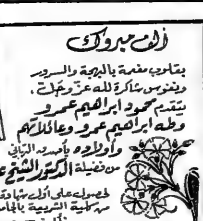 ألف مبروك
بقلوب مفعمة بالبهجة والسرور
وبنفوس شاكرة لله عزّ وجلّ،
يتقدم محمود ابراهيم عمرو
وطه ابراهيم عمرو وعائلاتهم
وأولاده بأصدق التهاني
من فضيلة الدكتور الشيخ
لحصوله على أول شهادة
من كلية الشريعة